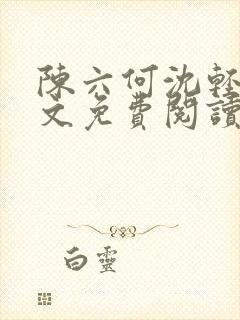 陳六何沈輕
文免費閱讀
白靈